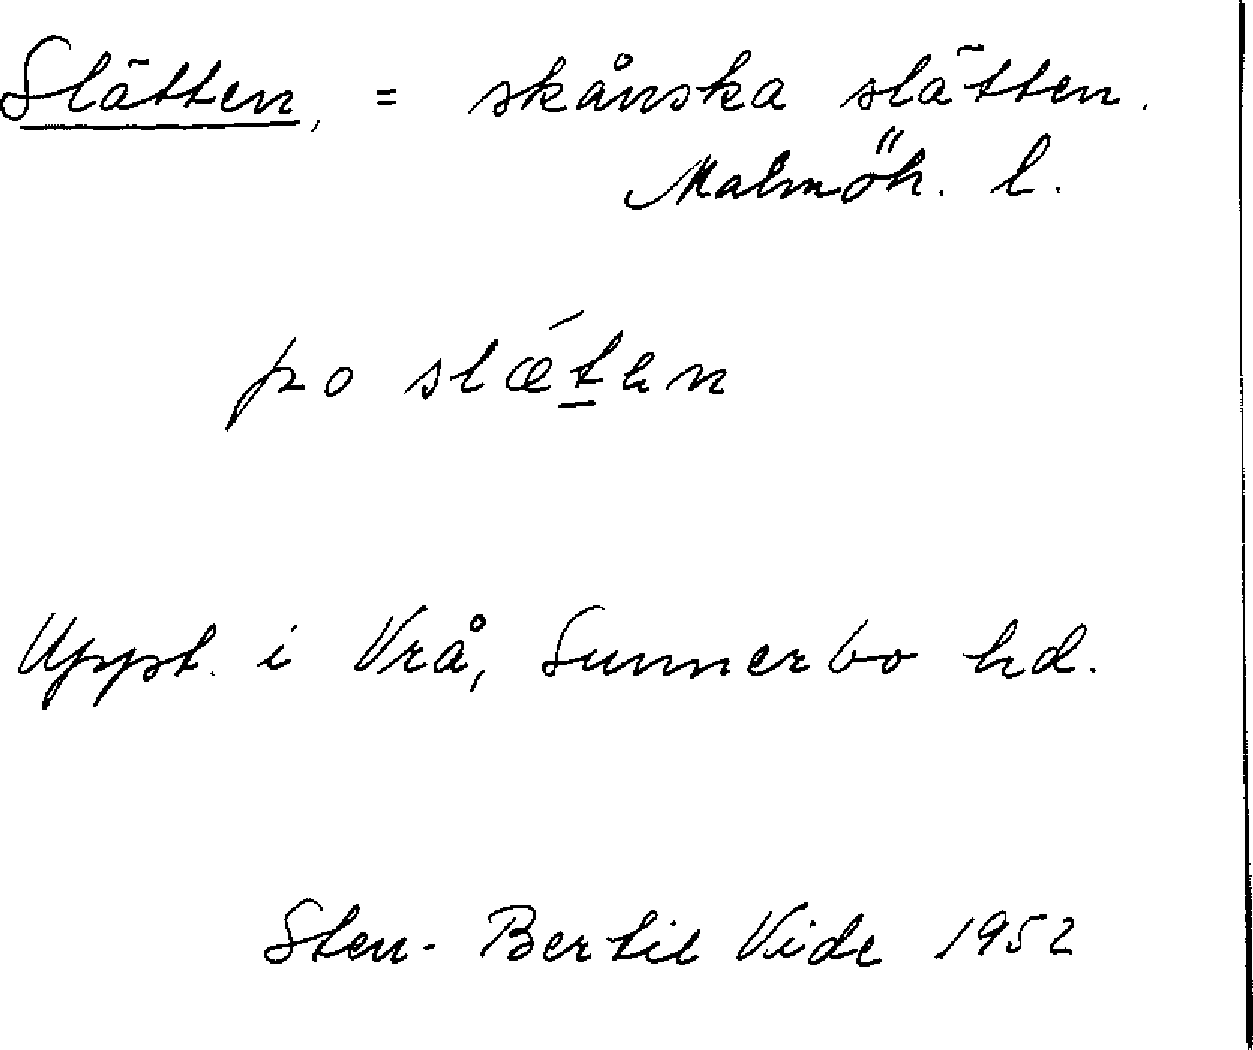 Slätten, = skånska slätten.
Malmöh. l.
po slǽt̲en
Uppt. i Vrå, Sunnerbo hd.
Sten-Bertil Vide 1952